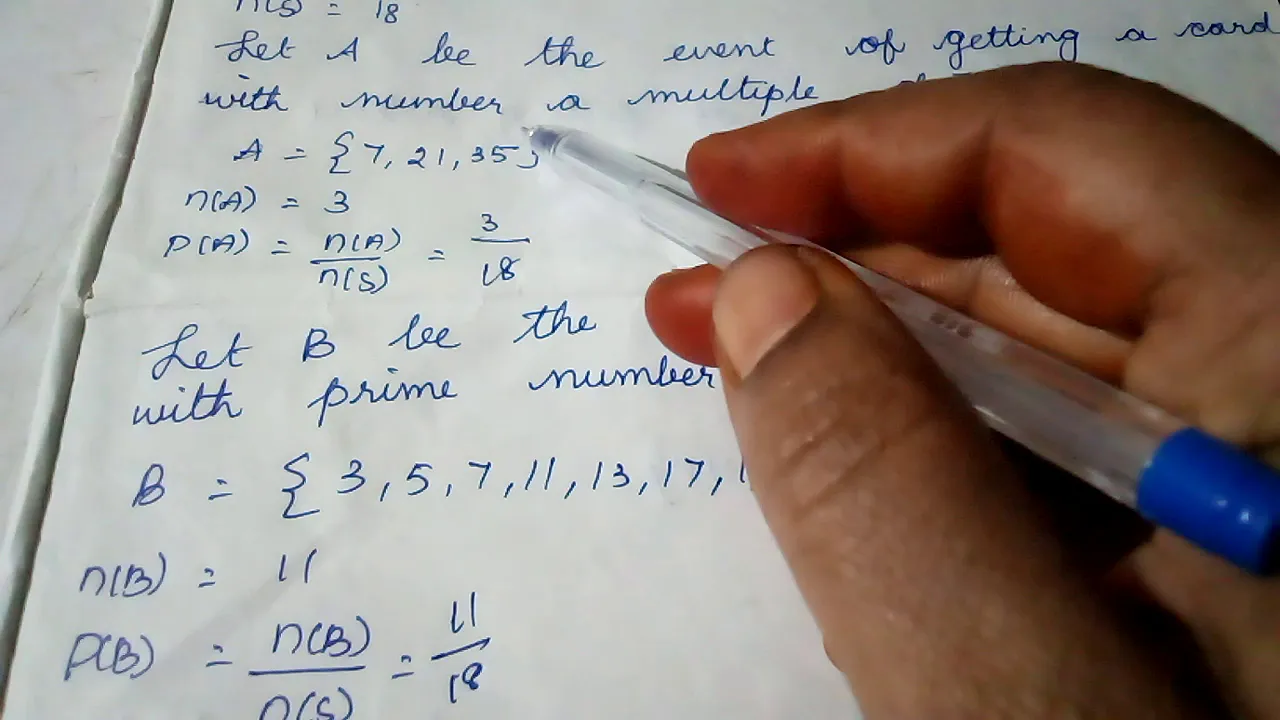 n(S) = 18
Let A be the event of getting a card
with number a multiple
A = {7, 21, 35}
n(A) = 3
P(A) = n(A)/n(S) = 3/18
Let B be the
with prime number
B = {3, 5, 7, 11, 13, 17, 1
n(B) = 11
P(B) = n(B)/n(S) = 11/18